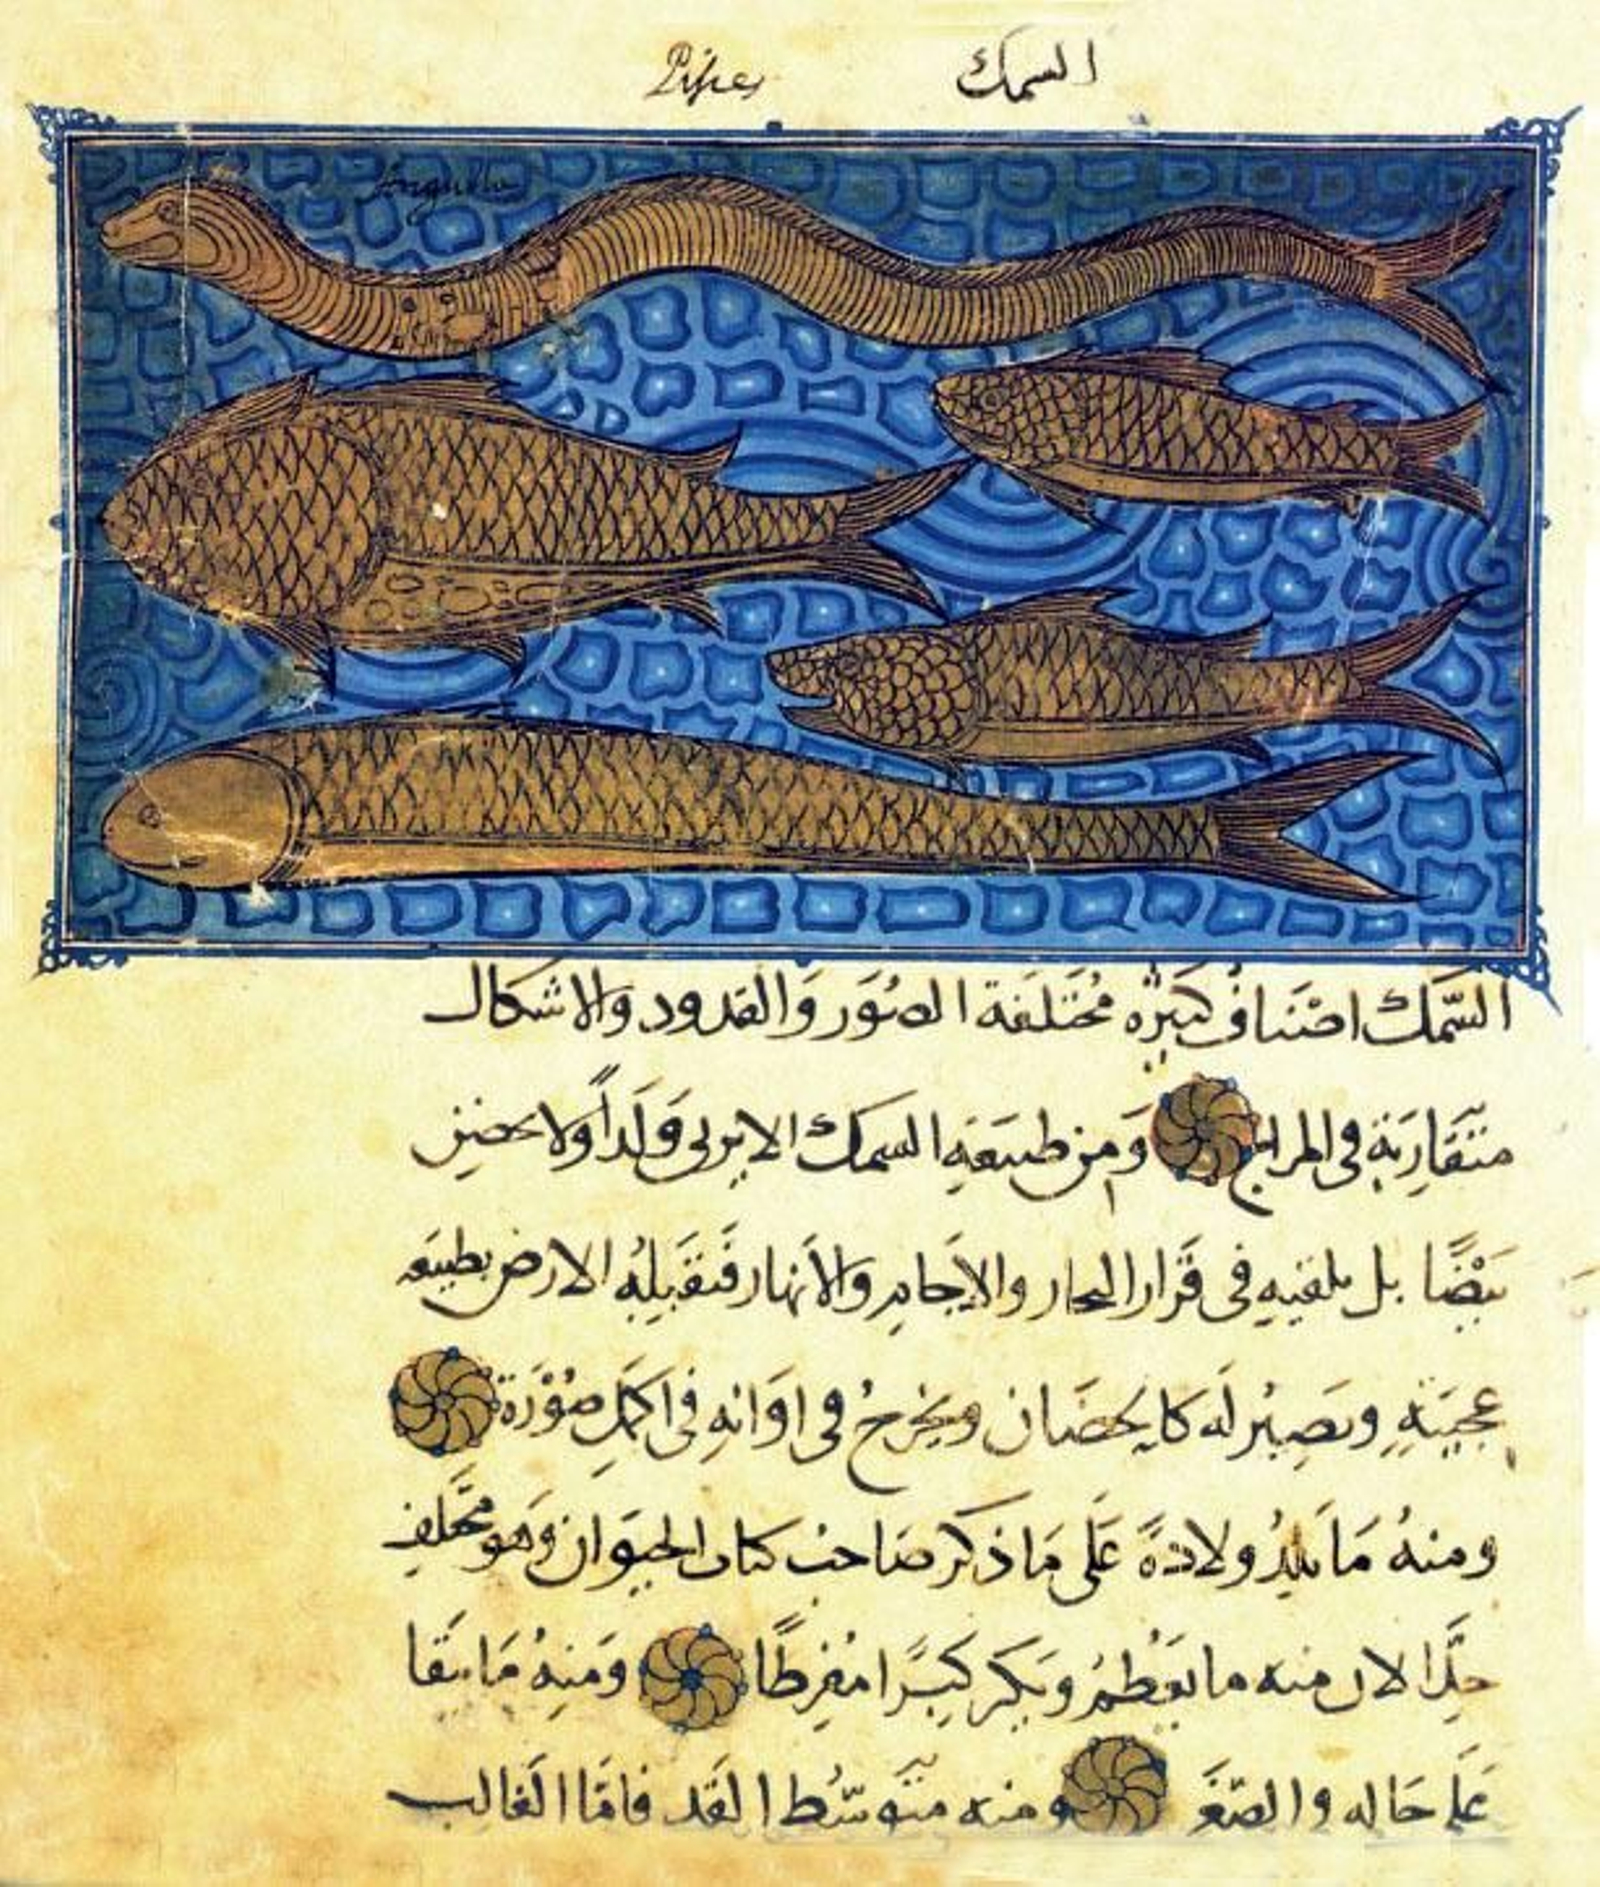 السمك Pisces
Anguilla
السَّمَك اصْنَافُ كثيرَه مُختَلفَة الصُوَر وَالقدود والاشكال
متقَارِبَة في المزاج وَمِن طبيعَةِ السَمَك الا يربى وَلَداً ولا يحضن
بَيْضًا بل يلقيه في قَرَار البحار والاِجَام والأنهار فَتقبَلهُ الارض بطبيعَه
عجيبَةٍ وتصِيْر لَه كالحضَان ويَخرُجُ في اوَانه في اكمَل صُوْرَة
ومنهُ مَا يَلِدُ ولادَةً عَلَى مَا ذكَر صَاحبُ كتاب الحيَوَان وَهو مختَلف
جِدًّا لان منه ما يَعْظمُ ويَكبَر كبَرًا مُفْرِطًا وَمنهُ مَا يَبقَا
عَلَى حَاله والصّغَر ومنه متوَسّط القَد فامّا الغَالب